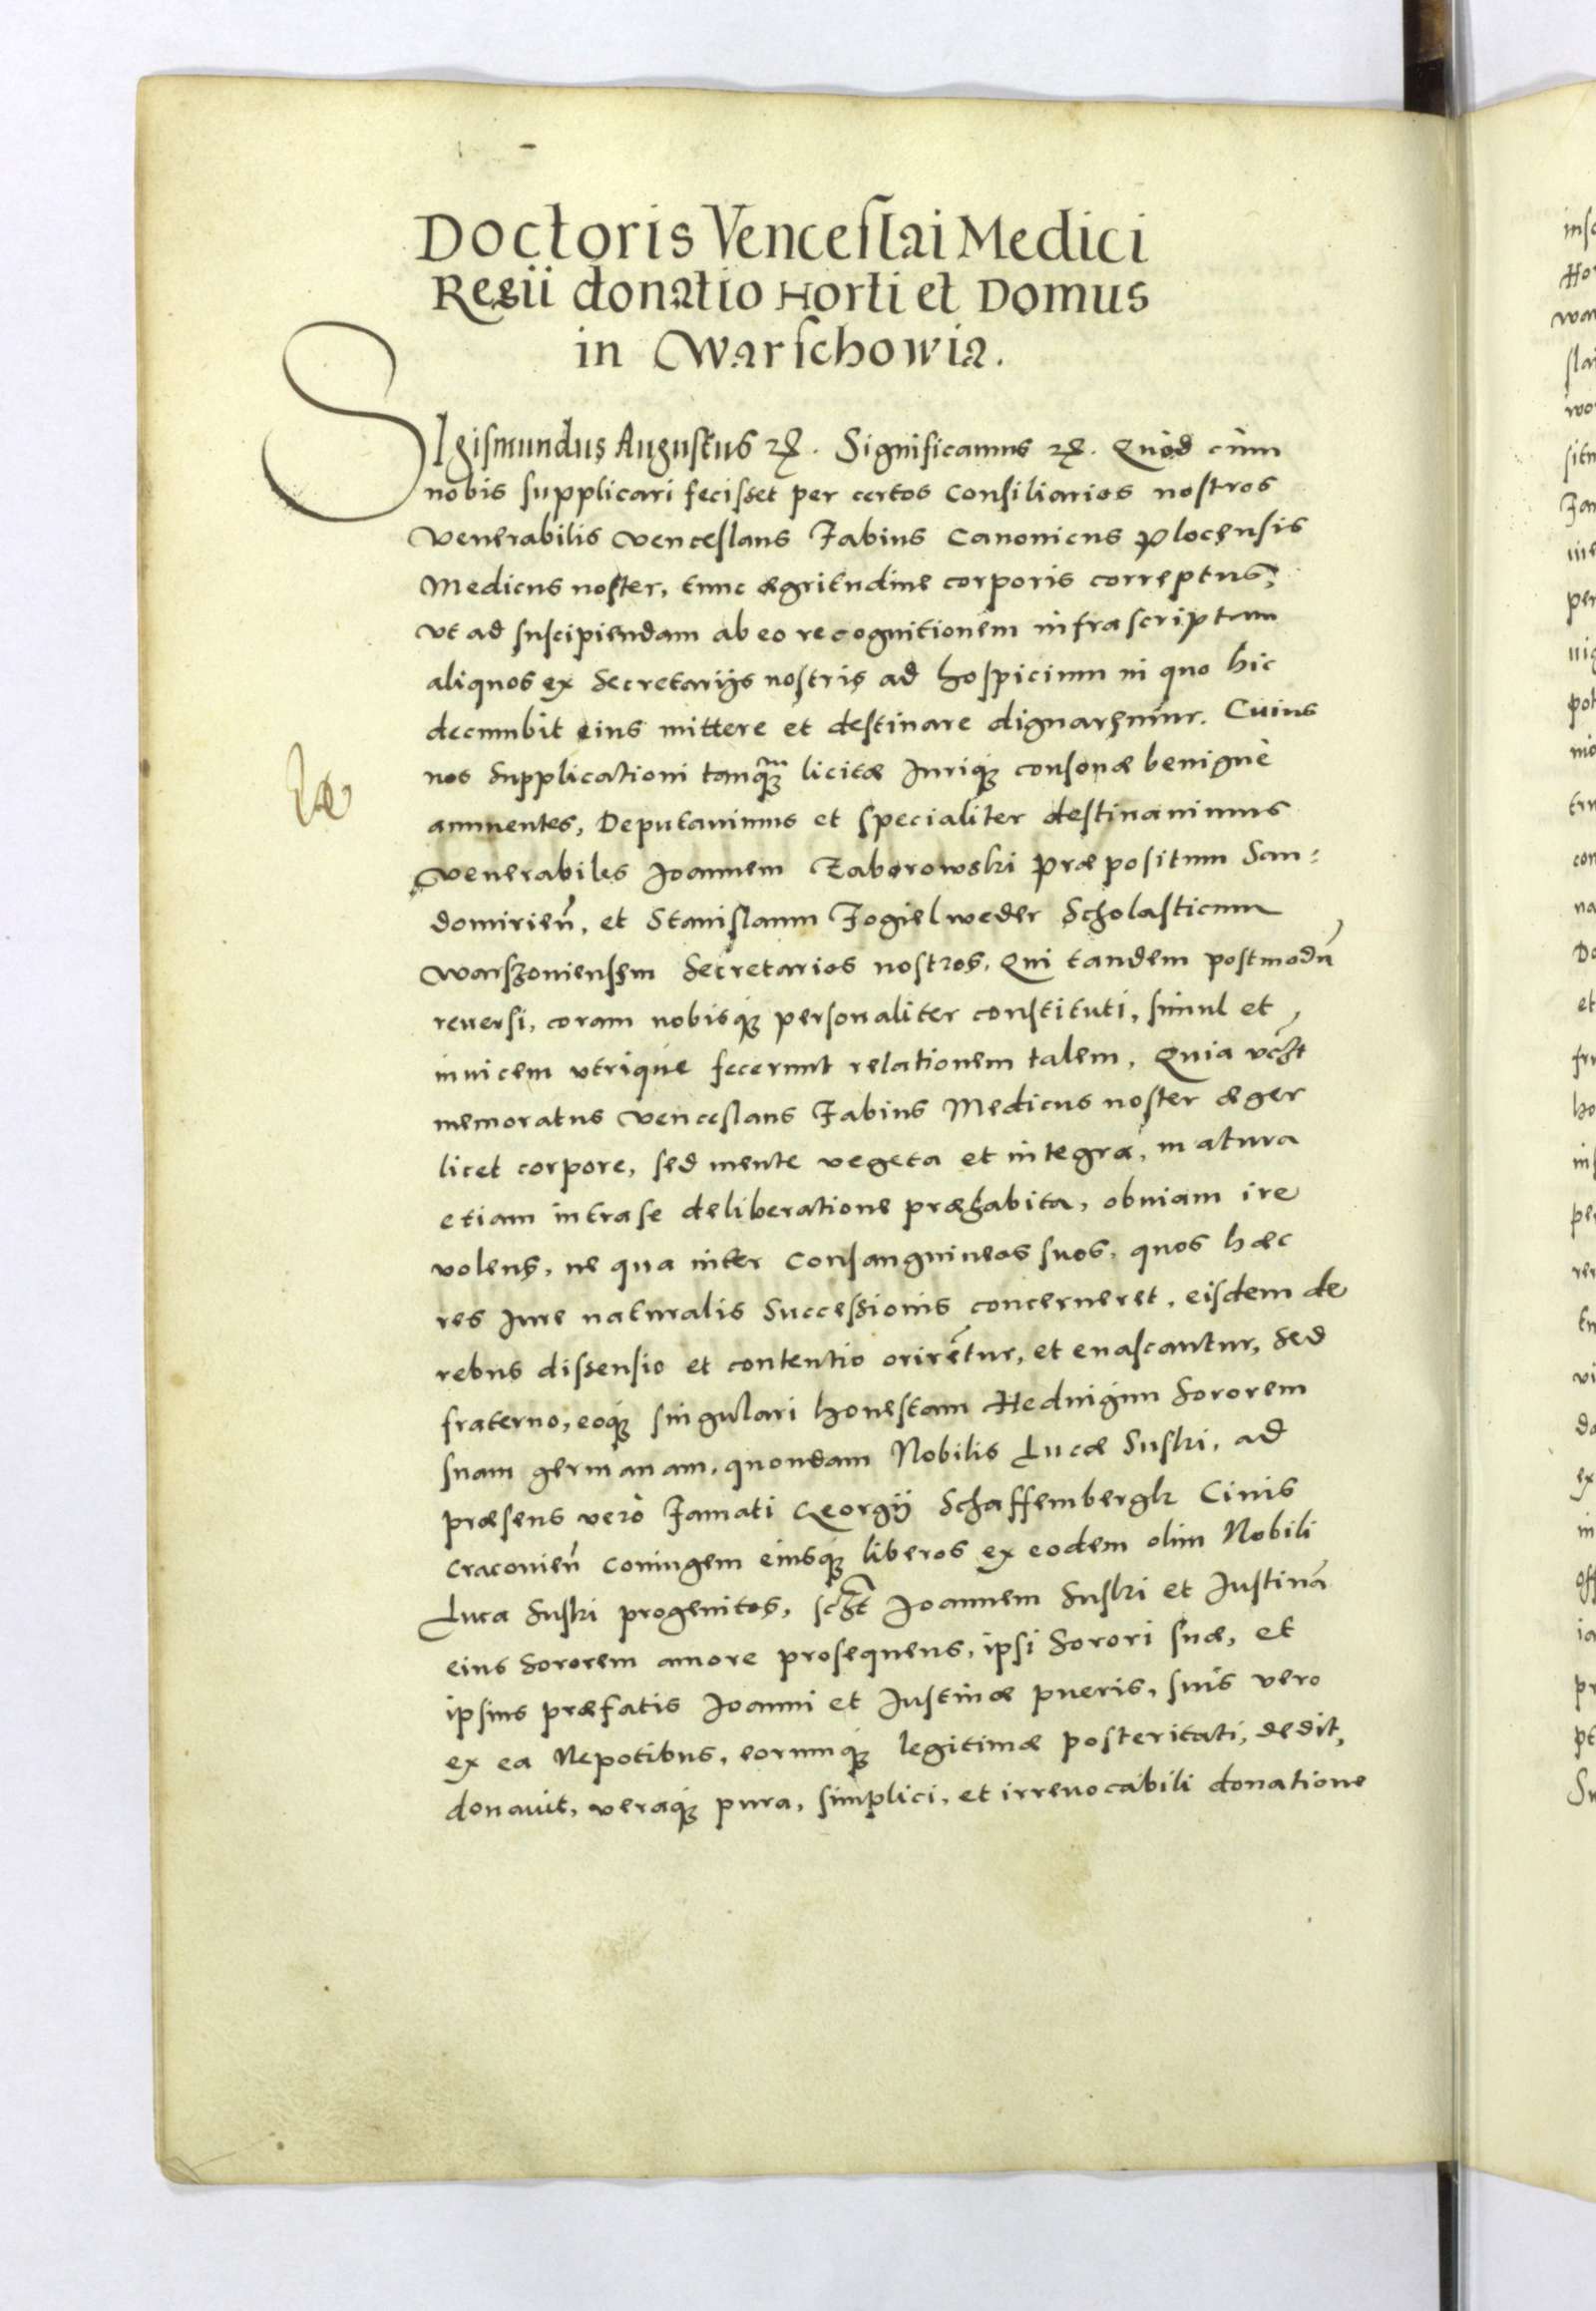 Doctoris Venceslai Medici
Regii donatio Horti et Domus
in Warschowia.
Sigismundus Augustus etc. Significamus etc. Quòd cùm
nobis supplicari fecisset per certos Consiliarios nostros
Venerabilis Venceslaus Fabius Canonicus Plocensis
Medicus noster, tunc ægritudine corporis correptus,
vt ad suscipiendam ab eo recognitionem infrascriptam
aliquos ex Secretarijs nostris ad hospicium in quo hic
decumbit eius mittere et destinare dignaremur. Cuius
nos Supplicationi tanq̃ licitæ Juriq; consonæ benignè
annuentes, Deputauimus et specialiter destinauimus
Venerabiles Joannem Zaborowski Præpositum San:
domirień, et Stanislaum Fogielweder Scholasticum
Warszouiensem Secretarios nostros, Qui tandem postmodũ
reuersi, coram nobisq; personaliter constituti, simul et
inuicem vtrique fecerunt relationem talem, Quia vcꝫt
memoratus Venceslaus Fabius Medicus noster æger
licet corpore, sed mente vegeta et integra, matura
etiam intra se deliberatione præhabita, obuiam ire
volens, ne qua inter Consanguineos suos, quos hæc
res Jure naturalis Successionis concerneret, eisdem de
rebus dissensio et contentio orirẽtur, et enascantur, Sed
fraterno, eoq; singulari honestam Heduigim Sororem
suam germanam, quondam Nobilis Lucæ Suski, ad
præsens verò Famati Georgij Schaffembergk Ciuis
Cracouień Coniugem eiusq; liberos ex eodem olim Nobili
Luca Suski progenitos, scꝫt Joannem Suski et Justinã
eius Sororem amore prosequens, ipsi Sorori suæ, et
ipsius præfatis Joanni et Justinæ pueris, suis vero
ex ea Nepotibus, eorumq; legitimæ posteritati, dedit,
donauit, veraq; pura, simplici, et irreuocabili donatione